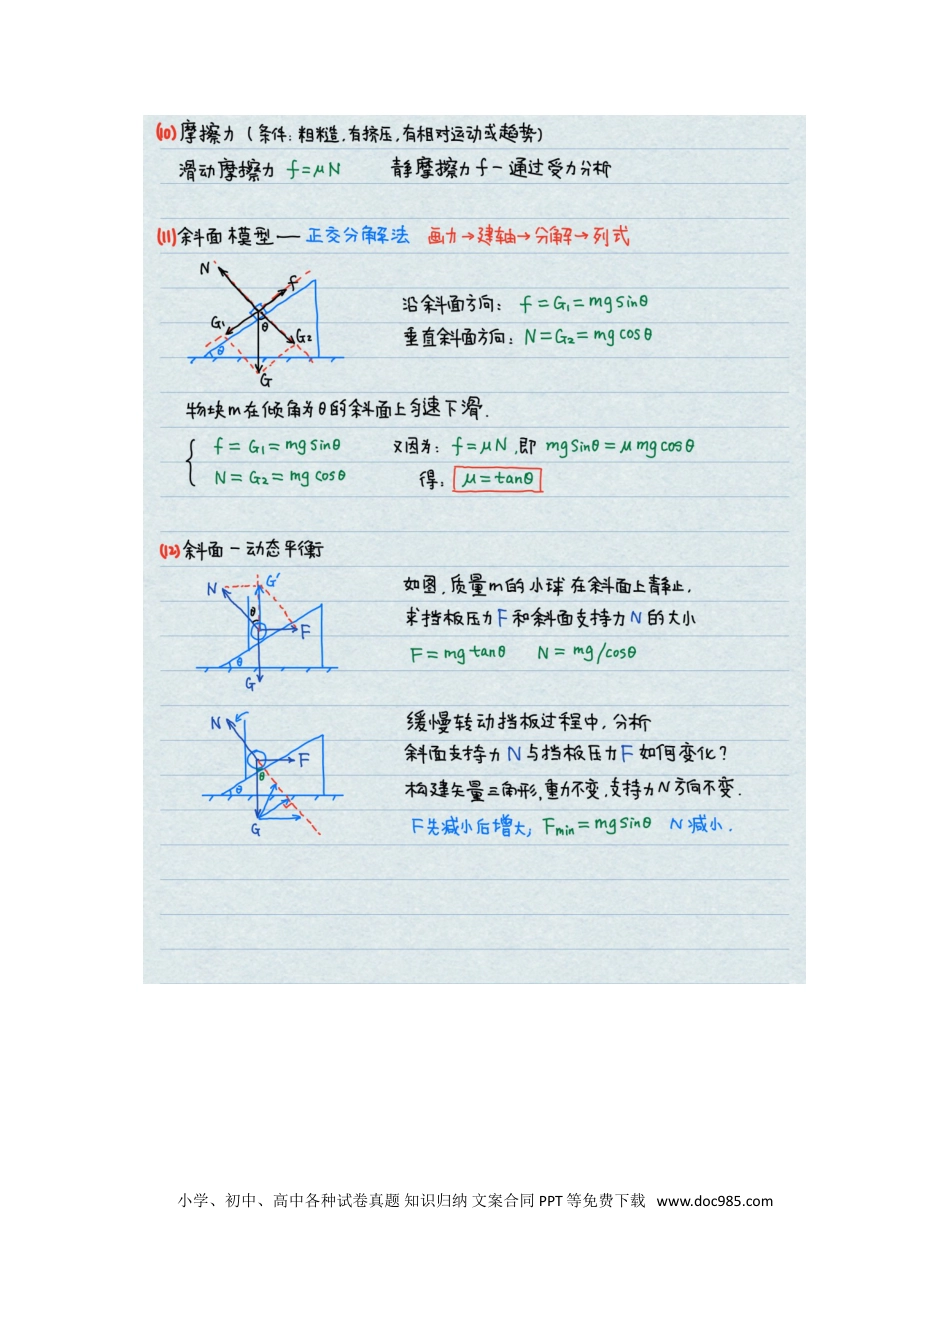 (10) 摩擦力 (条件：粗糙，有挤压，有相对运动或趋势)
滑动摩擦力 f=μN 静摩擦力 f－通过受力分析
(11) 斜面模型 — 正交分解法 画力→建轴→分解→列式
N
f
G₁
θ
G₂
θ
G
沿斜面方向： f=G₁=mgsinθ
垂直斜面方向：N=G₂=mgcosθ
物块m在倾角为θ的斜面上匀速下滑．
f=G₁=mgsinθ 又因为：f=μN，即 mgsinθ=μmgcosθ
N=G₂=mgcosθ 得：μ=tanθ
(12) 斜面－动态平衡
N
G′
θ
F
θ
G
如图，质量m的小球在斜面上静止，
求挡板压力F和斜面支持力N的大小
F=mgtanθ N=mg/cosθ
N
F
θ
θ
G
缓慢转动挡板过程中，分析
斜面支持力N与挡板压力F如何变化？
构建矢量三角形，重力不变，支持力N方向不变．
F先减小后增大；Fmin=mgsinθ N减小．
小学、初中、高中各种试卷真题 知识归纳 文案合同 PPT 等免费下载 www.doc985.com